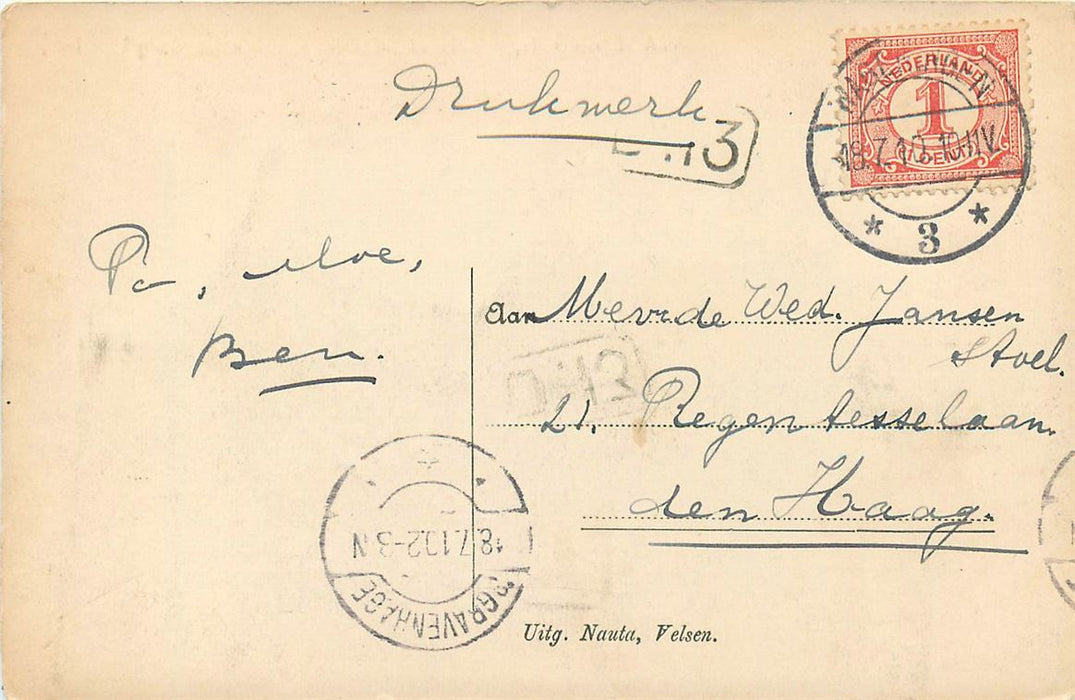 Drukwerk
NEDERLAND
1
CENT
18.7.10 10-11V.
* 3 *
Pa, Moe,
Ben.
Aan Mevr de Wed. Jansen
Stoel.
21. Regentesselaan.
den Haag.
18.7.10 2-3 N
'SGRAVENHAGE
Uitg. Nauta, Velsen.